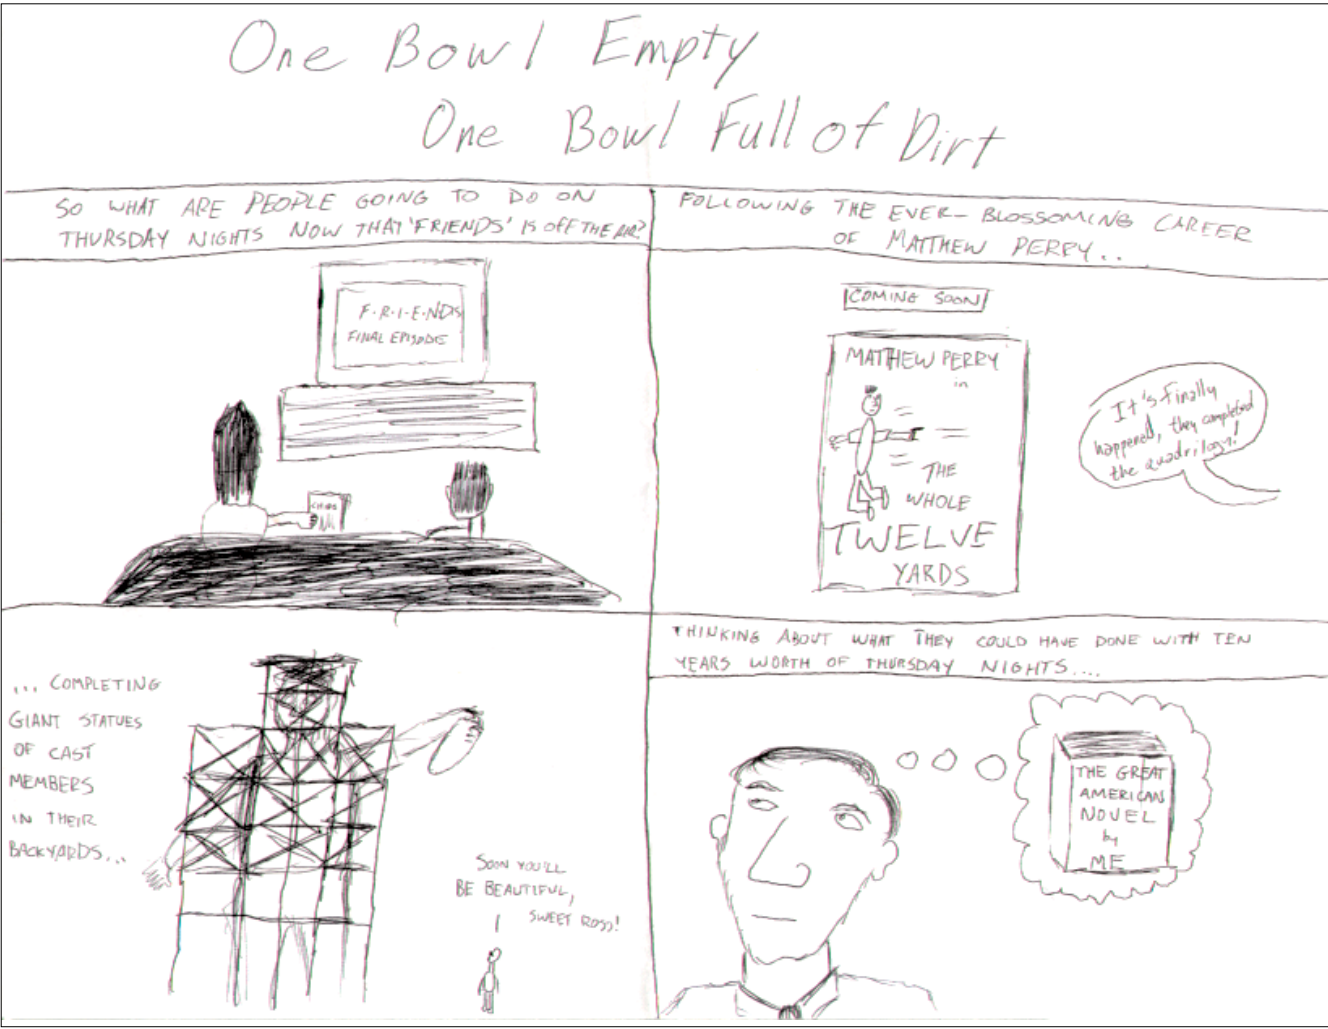 One Bowl Empty
One Bowl Full of Dirt
SO WHAT ARE PEOPLE GOING TO DO ON
THURSDAY NIGHTS NOW THAT 'FRIENDS' IS OFF THE AIR?
F·R·I·E·NDS
FINAL EPISODE
CHIPS
FOLLOWING THE EVER-BLOSSOMING CAREER
OF MATTHEW PERRY...
COMING SOON
MATTHEW PERRY
in
THE
WHOLE
TWELVE
YARDS
It's finally
happened, they completed
the quadrilogy!
... COMPLETING
GIANT STATUES
OF CAST
MEMBERS
IN THEIR
BACKYARDS...
SOON YOU'LL
BE BEAUTIFUL,
SWEET ROSS!
THINKING ABOUT WHAT THEY COULD HAVE DONE WITH TEN
YEARS WORTH OF THURSDAY NIGHTS....
THE GREAT
AMERICAN
NOVEL
by
ME